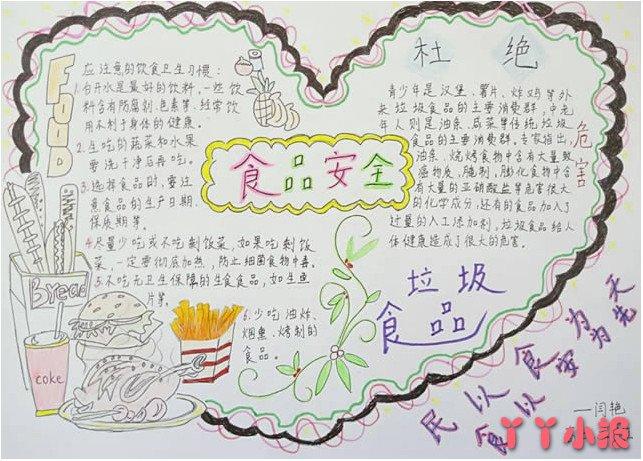 FOOD
应注意的饮食卫生习惯:
1.白开水是最好的饮料,一些饮
料含有防腐剂、色素等,经常饮
用不利于身体的健康。
2.生吃的蔬菜和水果
要洗干净后再吃。
3.选择食品时,要注
意食品的生产日期、
保质期等。
4.尽量少吃或不吃剩饭菜,如果吃剩饭
菜,一定要彻底加热,防止细菌食物中毒。
5.不吃无卫生保障的生食食品,如生鱼
片等。
6.少吃油炸、
烟熏、烤制的
食品。
Bread
coke
食品安全
杜绝
青少年是汉堡、薯片、炸鸡等外
来垃圾食品的主要消费群,中老
年人则是油条、咸菜等传统垃圾
食品的主要消费群。专家指出,
油条、烧烤食物中含有大量致
癌物质,腌制、膨化食物中含
有大量的亚硝酸盐等危害很大
的化学成分,还有的食品加入了
过量的人工添加剂,垃圾食品给人
体健康造成了很大的危害。
危害
垃圾
食品
民以食为天
食以安为先
——闫艳
丫丫小报